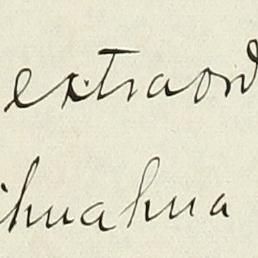 extraord
ihuahua